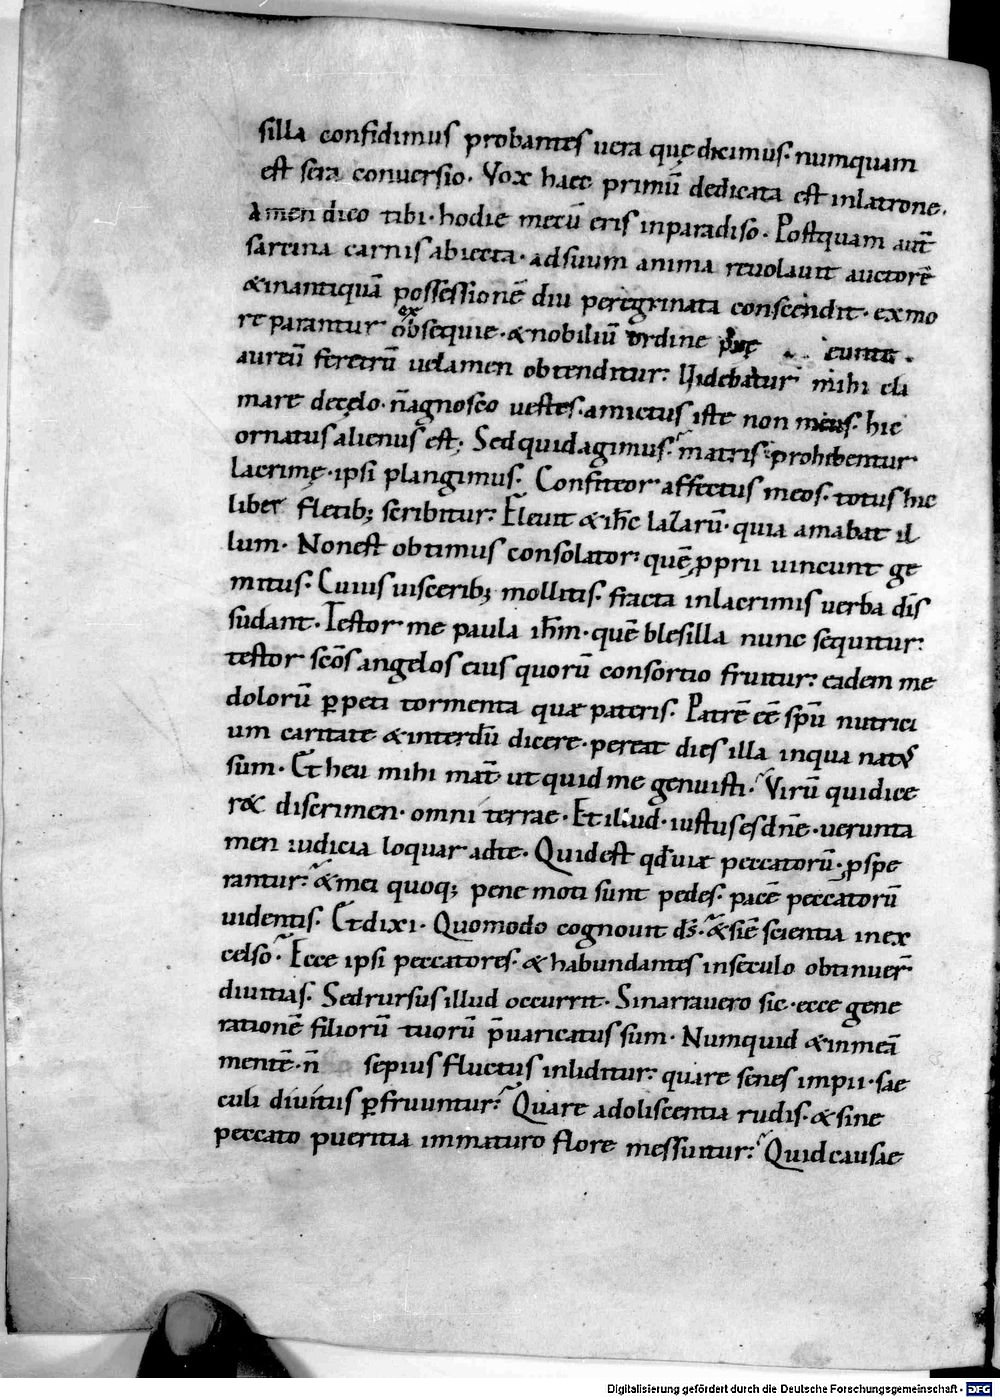 silla confidimus probantes uera quę dicimus· numquam
est sera conuersio· Vox haec primū dedicata est inlatrone·
Amen dico tibi· hodie mecū eris inparadiso· Postquam aut̄
sarcina carnis abiecta· adsuum anima reuolauit auctorē
&inantiquā possessionē diu peregrinata conscendit· exmo
re parantur obsequie· &nobiliū ordine euntē·
aureū feretrū uelamen obtenditur: Uidebatur mihi cla
mare decęlo· n̄agnosco uestes· amictus iste non meus· hic
ornatus alienus est; Sed quid agimus? matris prohibentur
lacrimę· ipsi plangimus· Confiteor affectus meos· totus hic
liber fletib; scribitur: Fleuit &ih̄c lazarū· quia amabat il
lum· Nonest obtimus consolator: quē ꝓprii uincunt ge
mitus· Cuius uisceríb; mollitis· fracta inlacrimis uerba dīs
sudant· Testor me paula ih̄m· quē blesilla nunc sequitur:
testor scōs angelos eius quorū consortio fruitur: eadem me
dolorū ꝑpeti tormenta quae pateris· Patrē eē spū nutrici
um caritate &interdū dicere· pereat dies illa inqua natꝰ
sum· Et heu mihi mat̄ ut quid me genuisti? Virū quidice
r& discrimen· omni terrae· Et illud· iustus es dn̄e· uerunta
men iudicia loquar adte· Quid est qd̄ uiae peccatorū· ꝓspe
rantur? &mei quoq; pene moti sunt pedes· pacē peccatorū
uidentis· Et dixi· Quomodo cognouit d̄s? &siē scientia inex
celso? Ecce ipsi peccatores· & habundantes inseculo obtinuer̄
diuitias· Sed rursus illud occurrit· Sinarrauero sic· ecce gene
rationē filiorū tuorū p̄uaricatus sum· Numquid &inmeā
mentē· n̄ sepius fluctus inliditur: quare senes impii· sae
culi diuitiis ꝑfruuntur? Quare adoliscentia rudis· & sine
peccato pueritia immaturo flore messuitur? Quid causae
Digitalisierung gefördert durch die Deutsche Forschungsgemeinschaft - DFG